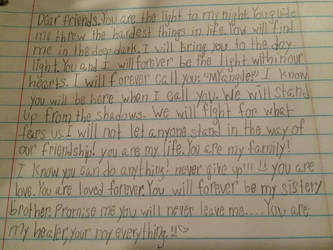 Dear friends. You are the light to my night. You glide
me threw the hardest things in life. You will find
me in the deep dark. I will bring you to the day
light. You and I will forever be the light within our
hearts. I will forever call you "My angle." I know
you will be here when I call you. We will stand
up from the shadows. We will flight for what
fears us. I will not let anyone stand in the way of
our friendship! you are my life. You are my family!
I know you can do anything! never give up!!!!! you are
love. You are loved forever. You will forever be my sister,
brother. Promise me you will never leave me..... You are
my healer, your my everything.!!<3